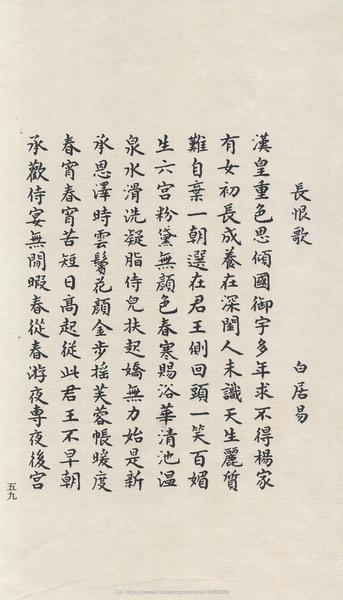 長恨歌 白居易
漢皇重色思傾國御宇多年求不得楊家
有女初長成養在深閨人未識天生麗質
難自棄一朝選在君王側回頭一笑百媚
生六宮粉黛無顏色春寒賜浴華清池温
泉水滑洗凝脂侍兒扶起嬌無力始是新
承恩澤時雲鬢花顏金步摇芙蓉帳暖度
春宵春宵苦短日高起從此君王不早朝
承歡侍宴無閒暇春從春游夜專夜後宮
五九